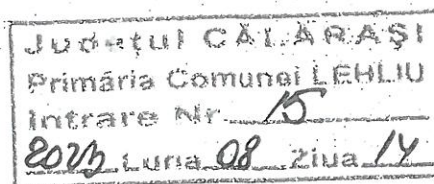 Județul CĂLĂRAȘI
Primăria Comunei LEHLIU
Intrare Nr. 15
2023 Luna 08 Ziua 14